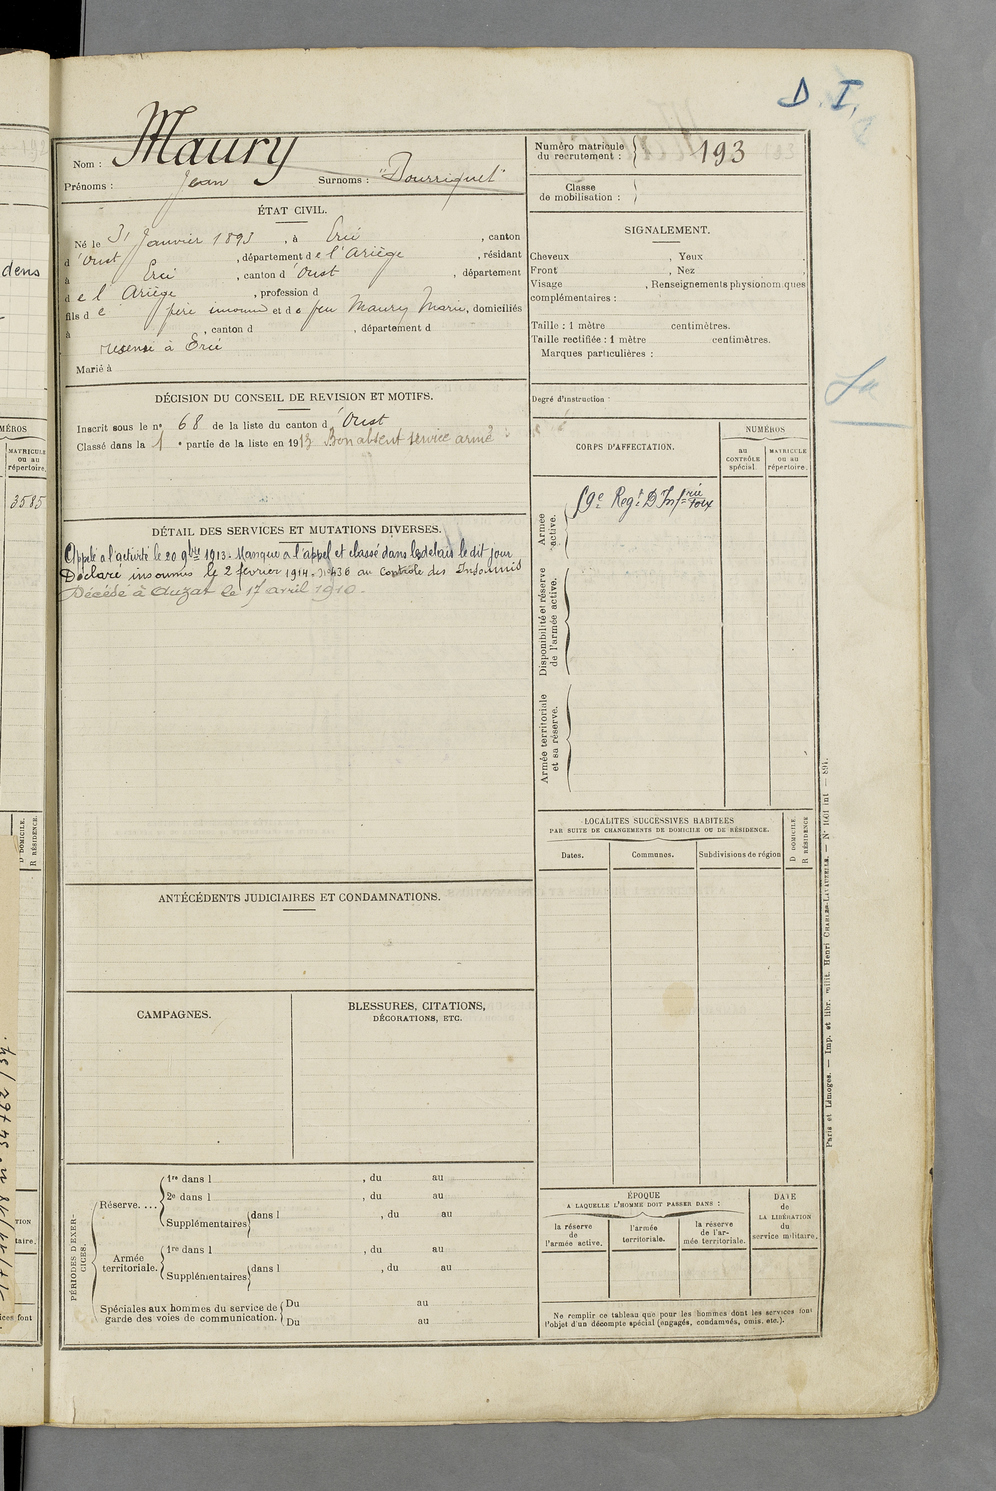 D. I.
Nom : Maury
Prénoms : Jean Surnoms : "Bourriquet"
Numéro matricule du recrutement : 193
Classe de mobilisation :
ÉTAT CIVIL.
Né le 31 Janvier 1893, à Ercé, canton
d'Oust, département de l'Ariège, résidant
à Ercé, canton d'Oust, département
de l'Ariège, profession d
fils de père inconnu et de feu Maury Marie, domiciliés
à , canton d , département d
recensé à Ercé
Marié à
SIGNALEMENT.
Cheveux , Yeux .
Front , Nez .
Visage , Renseignements physionomiques
complémentaires :
Taille : 1 mètre centimètres.
Taille rectifiée : 1 mètre centimètres.
Marques particulières :
Degré d'instruction :
DÉCISION DU CONSEIL DE REVISION ET MOTIFS.
Inscrit sous le no 68 de la liste du canton d'Oust
Classé dans la 1 e partie de la liste en 1913 Bon absent service armé
DÉTAIL DES SERVICES ET MUTATIONS DIVERSES.
Appelé à l'activité le 20 9bre 1913. Manque à l'appel et classé dans les délais le dit jour
Déclaré insoumis le 2 février 1914. No 436 au Contrôle des Insoumis
Décédé à Auzat le 17 avril 1910.
CORPS D'AFFECTATION.
NUMÉROS
au CONTRÔLE spécial.
MATRICULE ou au répertoire.
Armée active.
59e Regt D'Infrie Foix
Disponibilité et réserve de l'armée active.
Armée territoriale et sa réserve.
LOCALITÉS SUCCESSIVES HABITÉES
PAR SUITE DE CHANGEMENTS DE DOMICILE OU DE RÉSIDENCE.
Dates. Communes. Subdivisions de région
D DOMICILE.
R RÉSIDENCE
ANTÉCÉDENTS JUDICIAIRES ET CONDAMNATIONS.
CAMPAGNES.
BLESSURES, CITATIONS,
DÉCORATIONS, ETC.
PÉRIODES D'EXERCICES.
Réserve....
1re dans l , du au
2e dans l , du au
Supplémentaires dans l , du au
Armée territoriale.
1re dans l , du au
Supplémentaires dans l , du au
Spéciales aux hommes du service de Du au
garde des voies de communication. Du au
ÉPOQUE
A LAQUELLE L'HOMME DOIT PASSER DANS :
la réserve de l'armée active.
l'armée territoriale.
la réserve de l'armée territoriale.
DATE de LA LIBÉRATION du service militaire.
Ne remplir ce tableau que pour les hommes dont les services font
l'objet d'un décompte spécial (engagés, condamnés, omis, etc.).
Paris et Limoges. — Imp. et libr. milit. Henri CHARLES-LAVAUZELLE. —
dens
MÉROS
MATRICULE ou au répertoire.
3585
D DOMICILE.
R RÉSIDENCE.